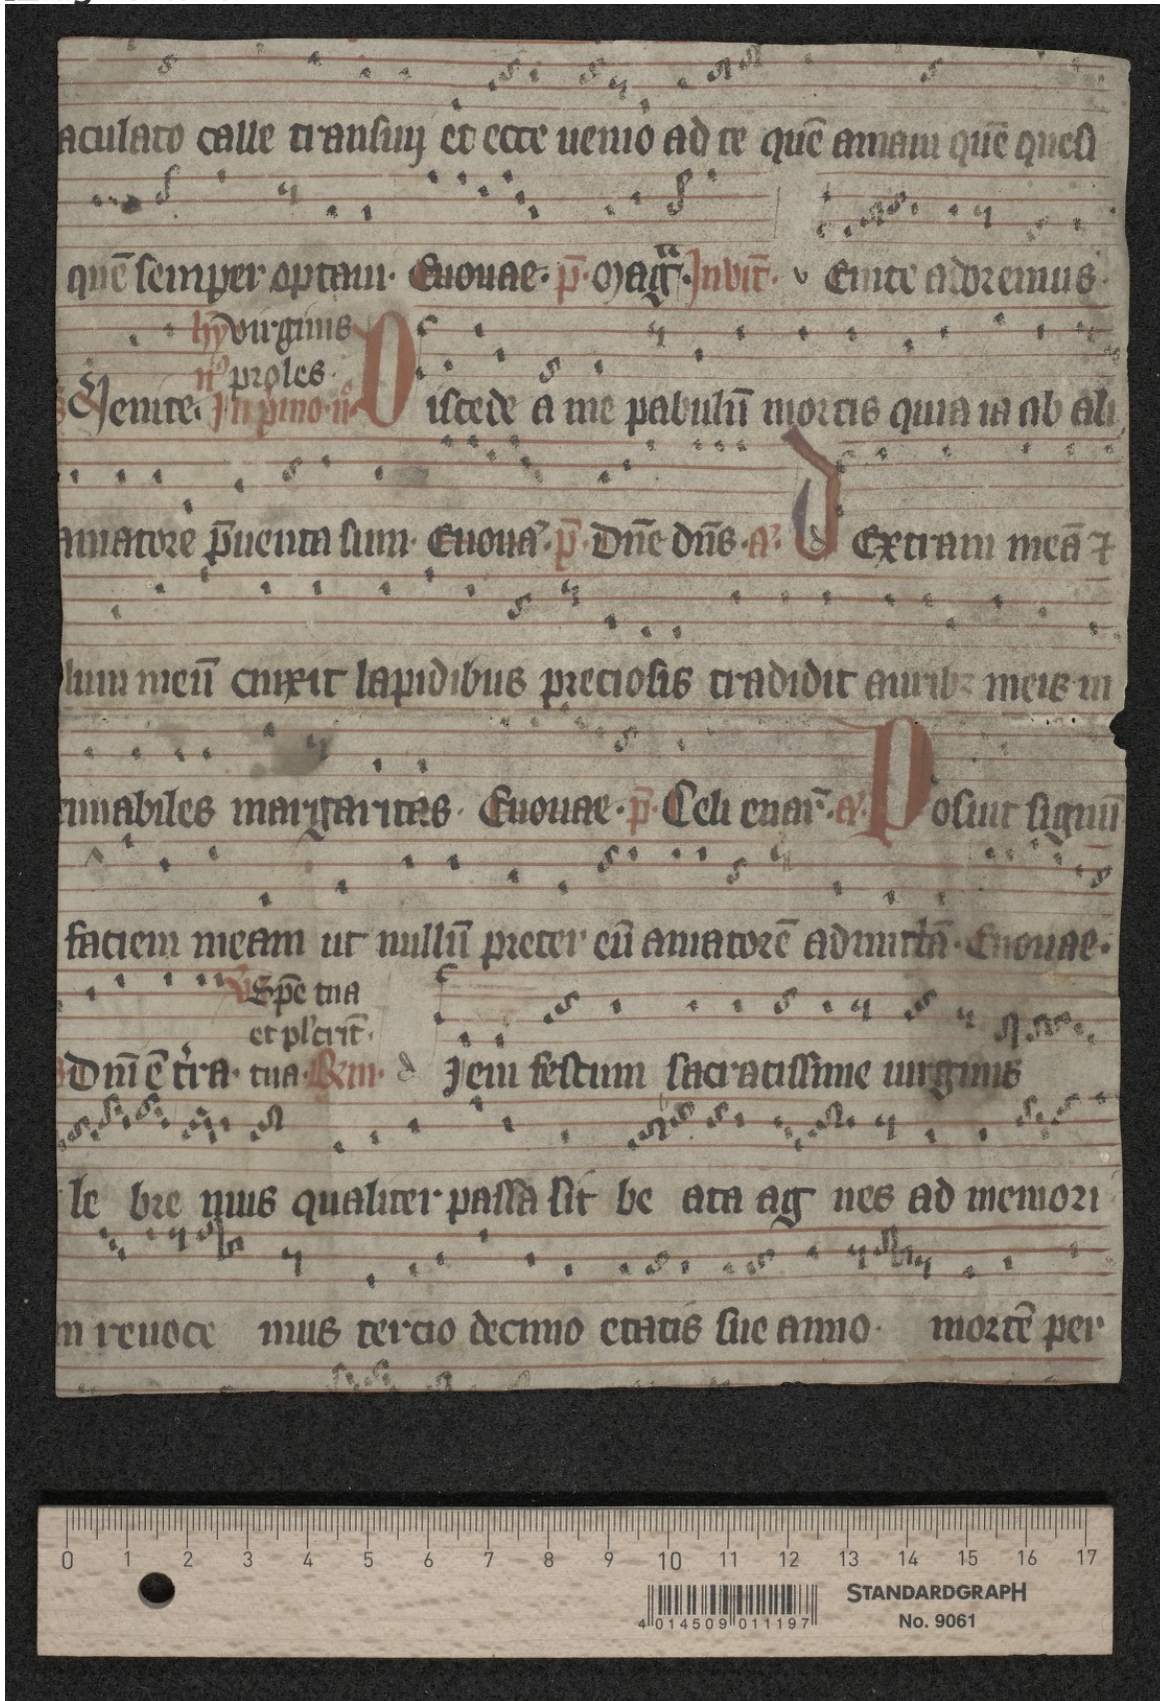 aculato calle transiuj et ecce uenio ad te quē amaui quē quesi
quē semper optaui. Euouae. p̄. Mag̃t. Inuit̄. v Enite adoremus
hy̅ virginis
n̊ proles.
Uenite. In pimo. n̊ Discede a me pabulū mortis quia ia ab ali
amatore p̄uenta sum. Euoua. p̄. Dn̄e dn̄s. a̓. d Extram meā ⁊
lum meū cinxit lapidibus preciosis tradidit aurib; meis in
timabiles margaritas. Euouae. p̄. Celi enar̄. a̓. Posuit signū
faciem meam ut nullū preter eū amatorē admittā. Euouae.
Spē tua
et pl̓crit̄.
Dn̄i ē t̓ra. tua. d Iem festum sacratissime uirginis
le bre mus qualiter passa sit be ata ag nes ad memori
m reuoce mus tercio decimo etatis sue anno. mortē per
0 1 2 3 4 5 6 7 8 9 10 11 12 13 14 15 16 17
4 014509 011197
STANDARDGRAPH
No. 9061